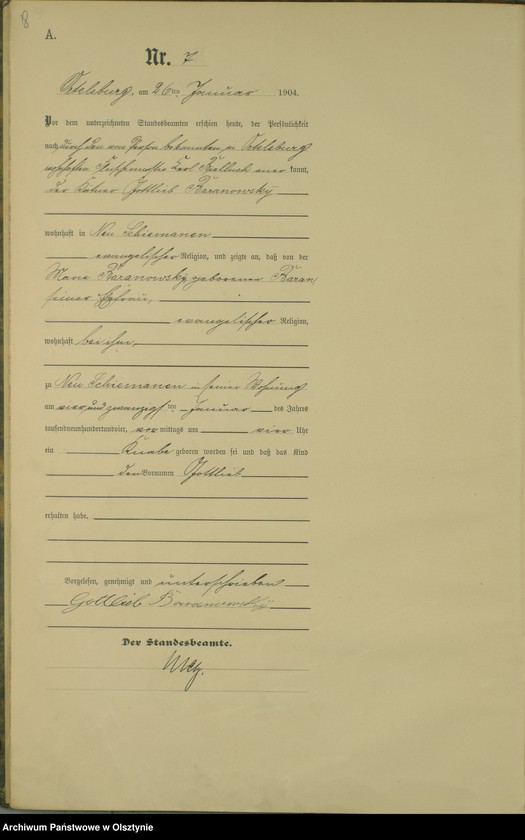 8
A.
Nr. 7
Ortelsburg, am 26ten Januar 1904.
Vor dem unterzeichneten Standesbeamten erschien heute, der Persönlichkeit
nach durch den von Person bekannten in Ortelsburg
wohnhaften Karl kannt,
der Kätner Gottlieb Baranowsky
wohnhaft in Neu Schiemanen
evangelischer Religion, und zeigte an, daß von der
Marie Baranowsky geborenen Baran,
seiner Ehefrau,
evangelischer Religion,
wohnhaft bei ihm,
zu Neu Schiemanen in seiner Wohnung
am vier und zwanzigsten Januar des Jahres
tausendneunhundertundvier, vor mittags um vier Uhr
ein Knabe geboren worden sei und daß das Kind
den Vornamen Gottlieb
erhalten habe.
Vorgelesen, genehmigt und unterschrieben
Gottlieb Baranowsky
Der Standesbeamte.
Archiwum Państwowe w Olsztynie